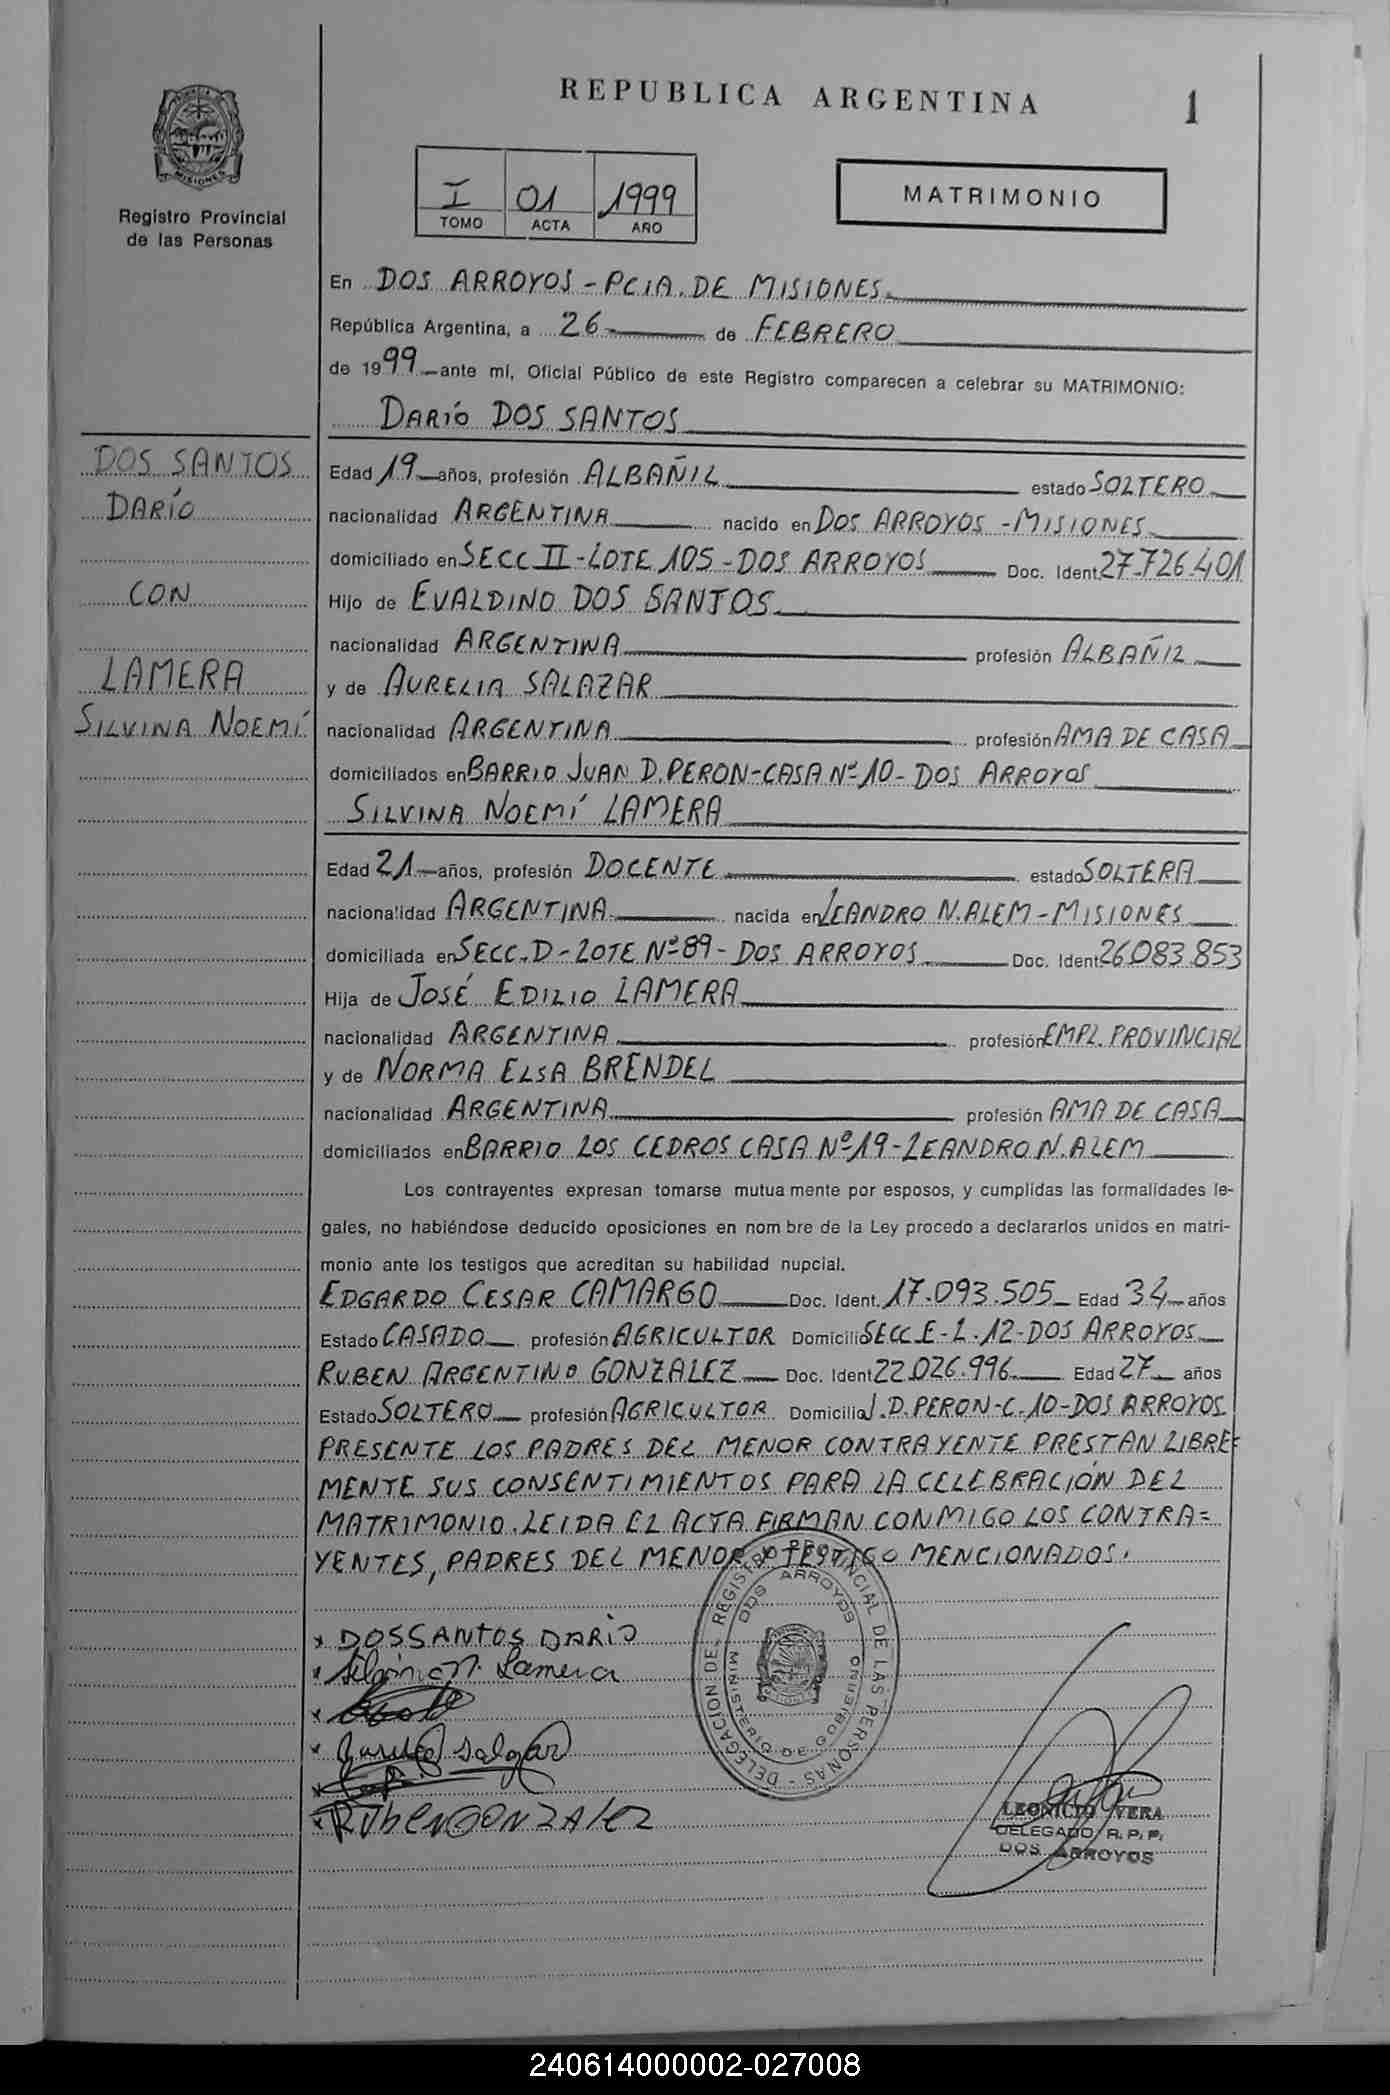 REPUBLICA ARGENTINA
1
MISIONES
Registro Provincial
de las Personas
I 01 1999
TOMO ACTA AÑO
MATRIMONIO
En DOS ARROYOS - PCIA. DE MISIONES.
República Argentina, a 26 de FEBRERO
de 1999 ante mí, Oficial Público de este Registro comparecen a celebrar su MATRIMONIO:
DARÍO DOS SANTOS
DOS SANTOS
DARÍO
CON
LAMERA
SILVINA NOEMÍ
Edad 19 años, profesión ALBAÑIL estado SOLTERO
nacionalidad ARGENTINA nacido en DOS ARROYOS - MISIONES
domiciliado en SECC II - LOTE 105 - DOS ARROYOS Doc. Ident. 27.726.401
Hijo de EVALDINO DOS SANTOS
nacionalidad ARGENTINA profesión ALBAÑIL
y de AURELIA SALAZAR
nacionalidad ARGENTINA profesión AMA DE CASA
domiciliados en BARRIO JUAN D. PERON - CASA Nº 10 - DOS ARROYOS
SILVINA NOEMÍ LAMERA
Edad 21 años, profesión DOCENTE estado SOLTERA
nacionalidad ARGENTINA nacida en LEANDRO N. ALEM - MISIONES
domiciliada en SECC. D - LOTE Nº 89 - DOS ARROYOS Doc. Ident. 26.083.853
Hija de JOSÉ EDILIO LAMERA
nacionalidad ARGENTINA profesión EMPL. PROVINCIAL
y de NORMA ELSA BRENDEL
nacionalidad ARGENTINA profesión AMA DE CASA
domiciliados en BARRIO LOS CEDROS CASA Nº 19 - LEANDRO N. ALEM
Los contrayentes expresan tomarse mutuamente por esposos, y cumplidas las formalidades le-
gales, no habiéndose deducido oposiciones en nombre de la Ley procedo a declararlos unidos en matri-
monio ante los testigos que acreditan su habilidad nupcial.
EDGARDO CESAR CAMARGO Doc. Ident. 17.093.505 Edad 34 años
Estado CASADO profesión AGRICULTOR Domicilio SECC E - L. 12 - DOS ARROYOS
RUBEN ARGENTINO GONZALEZ Doc. Ident 22.026.996 Edad 27 años
Estado SOLTERO profesión AGRICULTOR Domicilio J. D. PERON - C. 10 - DOS ARROYOS
PRESENTE LOS PADRES DEL MENOR CONTRAYENTE PRESTAN LIBRE=
MENTE SUS CONSENTIMIENTOS PARA LA CELEBRACIÓN DEL
MATRIMONIO. LEIDA EL ACTA FIRMAN CONMIGO LOS CONTRA=
YENTES, PADRES DEL MENOR Y TESTIGO MENCIONADOS.
DELEGACION DE REGISTRO PROVINCIAL DE LAS PERSONAS
DOS ARROYOS
MINISTERIO DE GOBIERNO
x DOSSANTOS DARIO
x Silvina N. Lamera
x
x Aurelia Salazar
x
x RUbEN GONZALEZ
LEONICIO VERA
DELEGADO R. P. P.
DOS ARROYOS
240614000002-027008